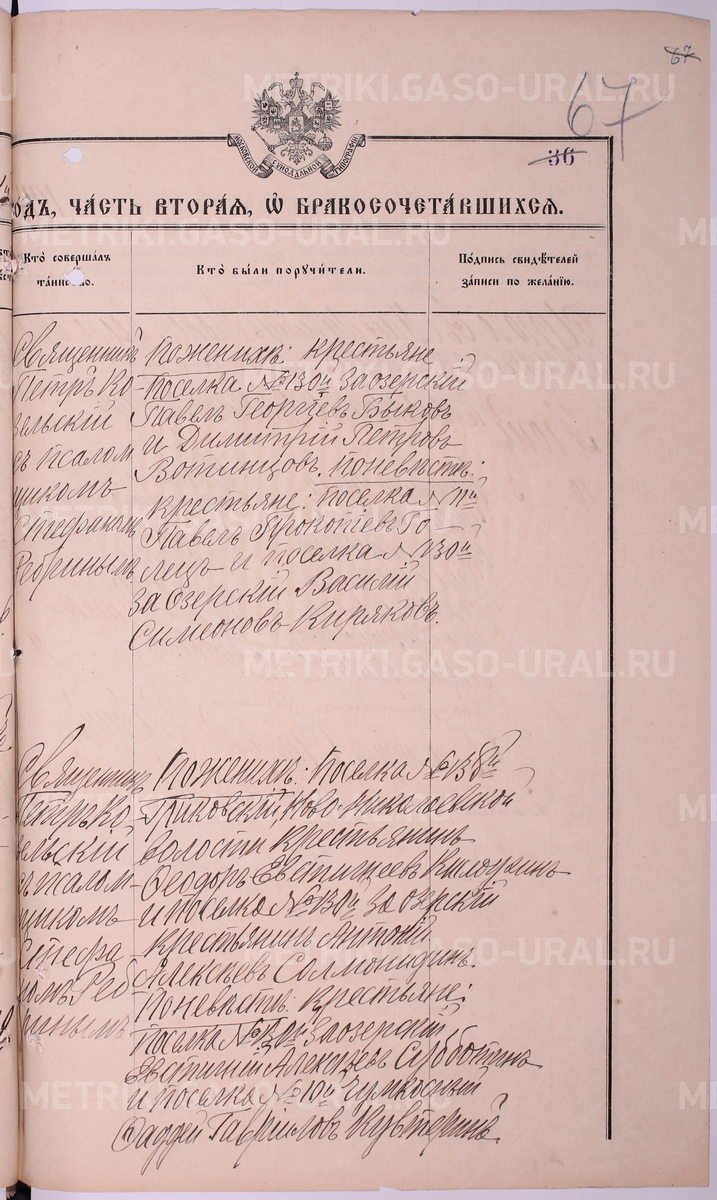 67
67
36
МОСКОВСКОЙ СѴНОДАЛЬНОЙ ТИПОГРАФІИ
ГОДЪ, ЧАСТЬ ВТОРАЯ, Ѽ БРАКОСОЧЕТАВШИХСЯ.
Кто совершалъ
таинство.
Кто были поручители.
Подпись свидѣтелей
записи по желанію.
Священникъ
Петръ Ко
зельскій
съ псалом
щикомъ
Стефаномъ
Ребринымъ
По женихѣ: крестьяне
поселка № 130й Заозерскій
Павелъ Георгіевъ Быковъ
и Димитрій Петровъ
Вотинцовъ. По невѣстѣ:
крестьяне: поселка № 11й
Павелъ Прокопіевъ Го
лецъ и поселка № 130й
Заозерскій Василій
Симеоновъ Киряковъ.
Священникъ
Петръ Ко
зельскій
съ псалом
щикомъ
Стефа
номъ Реб
ринымъ
По женихѣ: поселка № 138й
Гриковскій, Ново-Николаевской
волости крестьянинъ
Ѳеодоръ Евстигнеевъ
и поселка № 130й Заозерскій
крестьянинъ Антоній
Алексѣевъ
По невѣстѣ: крестьяне:
поселка № 130й Заозерскій
Евстигній Алексѣевъ Субботинъ
и поселка № 10й
Ѳаддей Гавріиловъ
METRIKI.GASO-URAL.RU